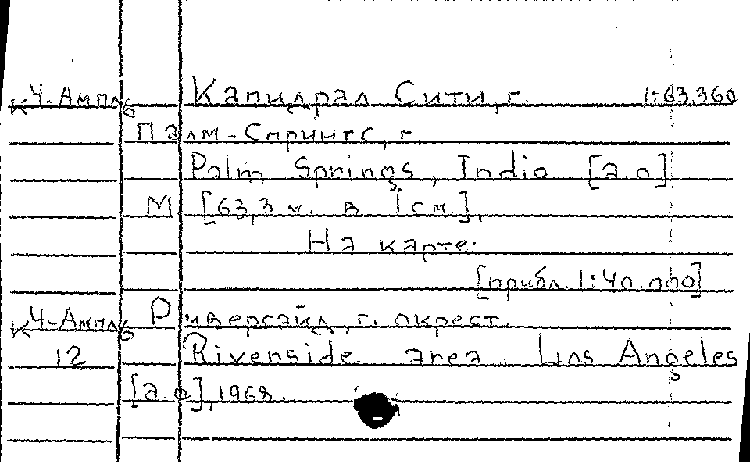 К4-Ампл6 Капидрал Сити, г. 1:63.360
Палм-Спрингс, г.
Palm Springs, Indio [a.o]
М [63,3 м. в 1 см],
На карте:
[прибл. 1:40 000]
К4-Ампл6 Риверсайд, г. окрест.
12 Riverside area Los Angeles
[a.o], 1968.